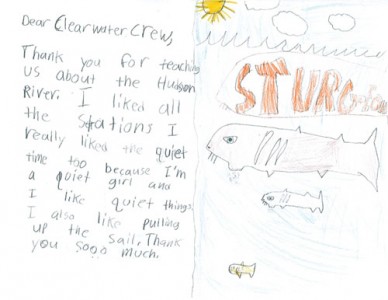 Dear Clearwater Crew,
Thank you for teaching
us about the Hudson
River. I liked all
the Stations I
really liked the quiet
time too because I'm
a quiet girl and
I like quiet things.
I also like pulling
up the sail, Thank
you sooo much.
STURGEON